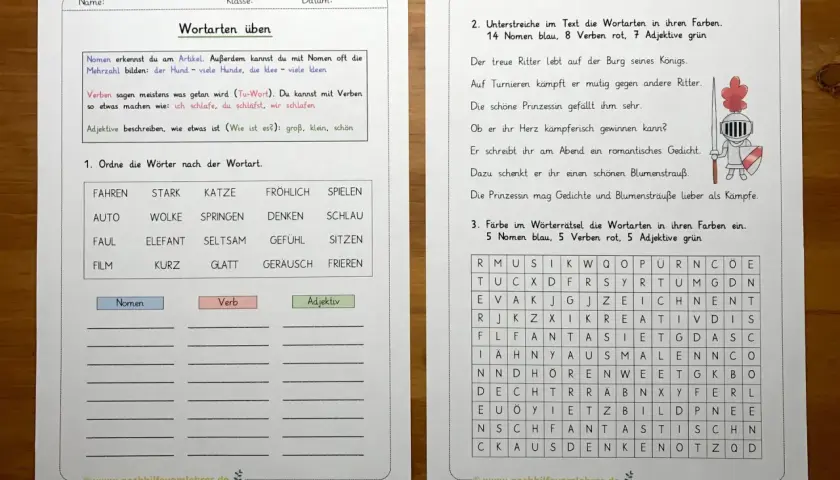 Name:
Klasse:
Datum:
Wortarten üben
Nomen erkennst du am Artikel. Außerdem kannst du mit Nomen oft die
Mehrzahl bilden: der Hund - viele Hunde, die Klee - viele Kleen
Verben sagen meistens was getan wird (Tu-Wort). Du kannst mit Verben
so etwas machen wie: ich schlafe, du schläfst, wir schlafen
Adjektive beschreiben, wie etwas ist (Wie ist es?): groß, klein, schön
1. Ordne die Wörter nach der Wortart.
FAHREN STARK KATZE FRÖHLICH SPIELEN
AUTO WOLKE SPRINGEN DENKEN SCHLAU
FAUL ELEFANT SELTSAM GEFÜHL SITZEN
FILM KURZ GLATT GERÄUSCH FRIEREN
Nomen Verb Adjektiv
2. Unterstreiche im Text die Wortarten in ihren Farben.
14 Nomen blau, 8 Verben rot, 7 Adjektive grün
Der treue Ritter lebt auf der Burg seines Königs.
Auf Turnieren kämpft er mutig gegen andere Ritter.
Die schöne Prinzessin gefällt ihm sehr.
Ob er ihr Herz kämpferisch gewinnen kann?
Er schreibt ihr am Abend ein romantisches Gedicht.
Dazu schenkt er ihr einen schönen Blumenstrauß.
Die Prinzessin mag Gedichte und Blumensträuße lieber als Kämpfe.
3. Färbe im Wörterrätsel die Wortarten in ihren Farben ein.
5 Nomen blau, 5 Verben rot, 5 Adjektive grün
R M U S I K W Q O P Ü R N C Ö E
T U C X D F R S Y R T U M G D N
E V A K J G J Z E I C H N E N T
R J K Z X I K R E A T I V D I S
F L F A N T A S I E T G D A S C
I A H N Y A U S M A L E N N C O
N N D H Ö R E N W E E T G K B O
D E C H T R R A B N X Y F E R L
E U Ö Y I E T Z B I L D P N E E
N S C H F A N T A S T I S C H N
C K A U S D E N K E N O T Z Q D